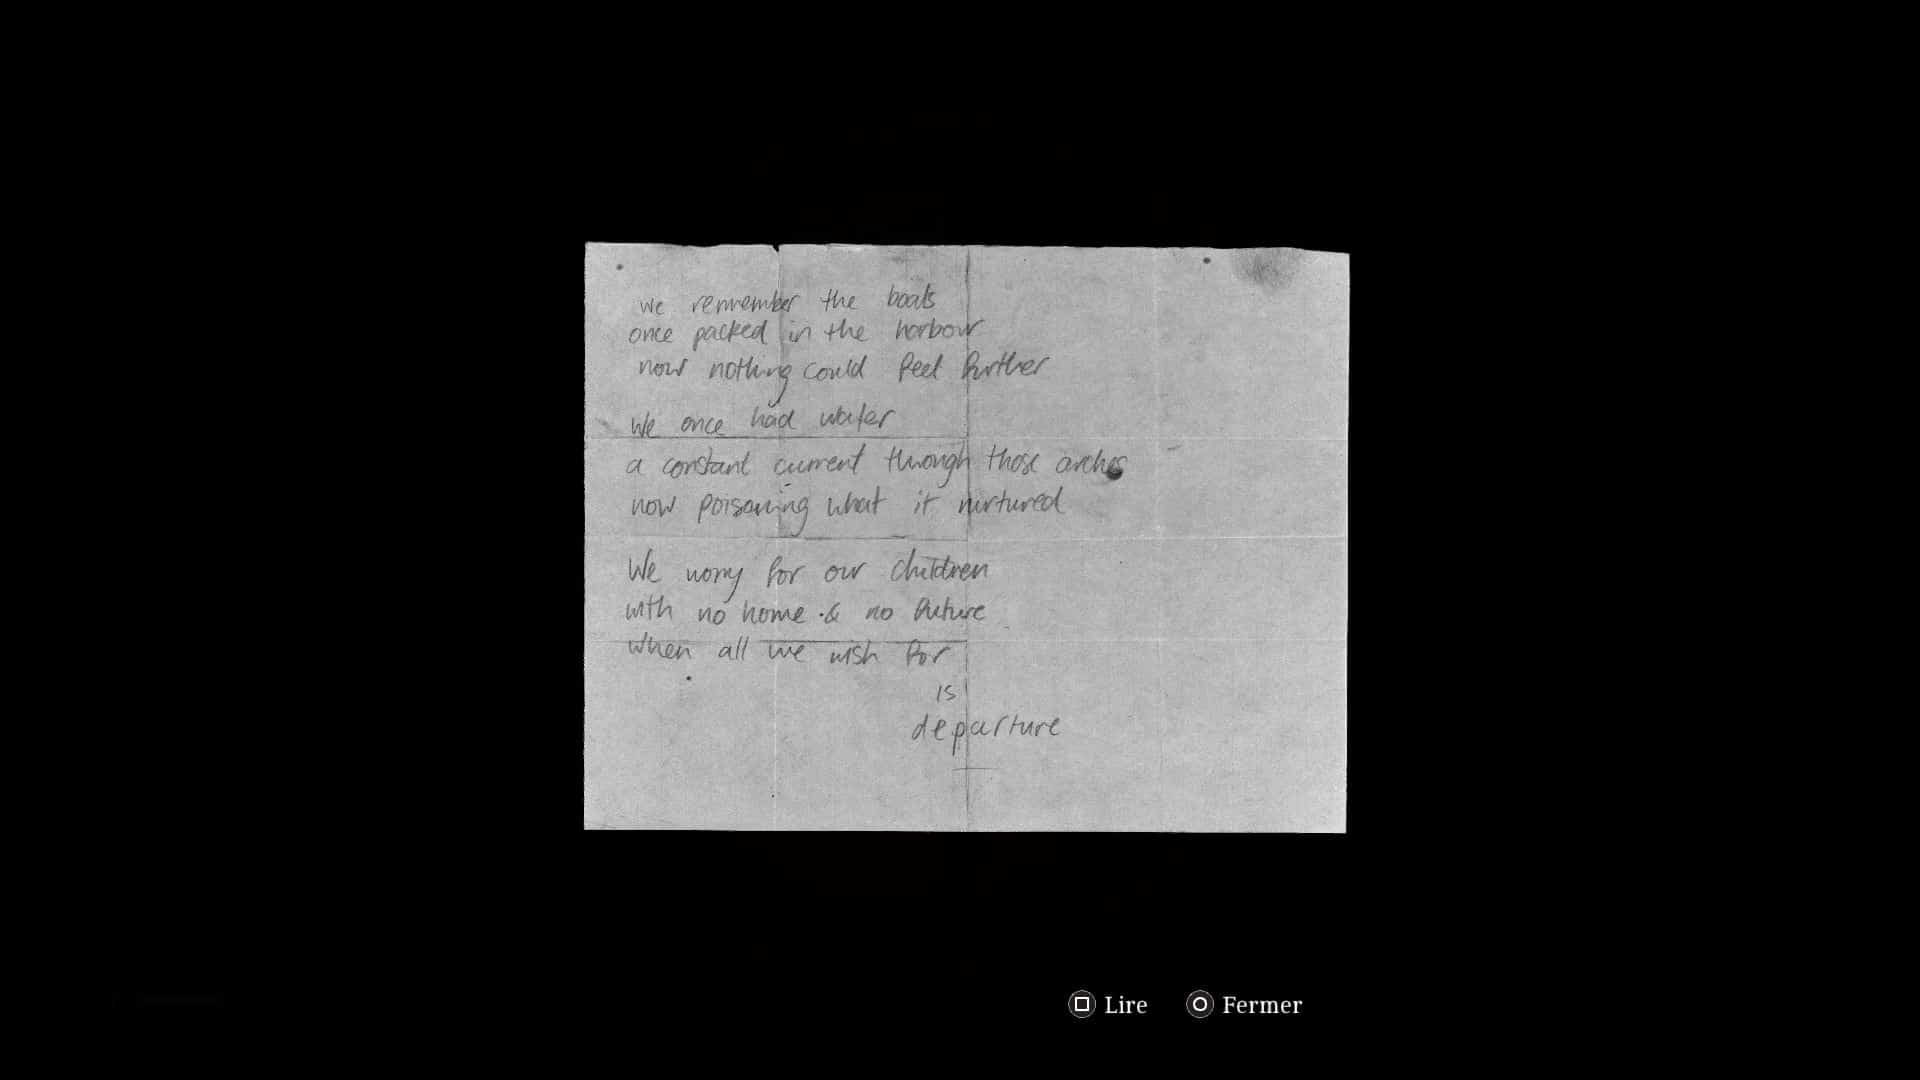 we remember the boats
once packed in the harbour
now nothing could feel further
we once had water
a constant current through those arches
now poisoning what it nurtured
We worry for our children
with no home & no future
when all we wish for
is
departure
Lire
Fermer